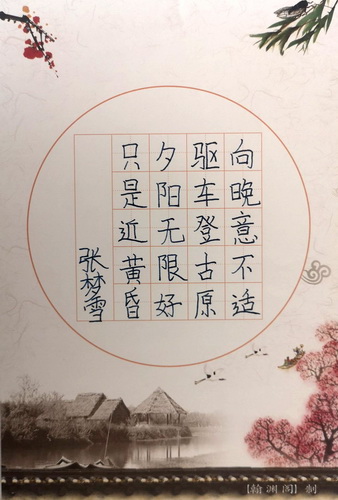 向晚意不适
驱车登古原
夕阳无限好
只是近黄昏
张梦雪
【翰渊阁】制